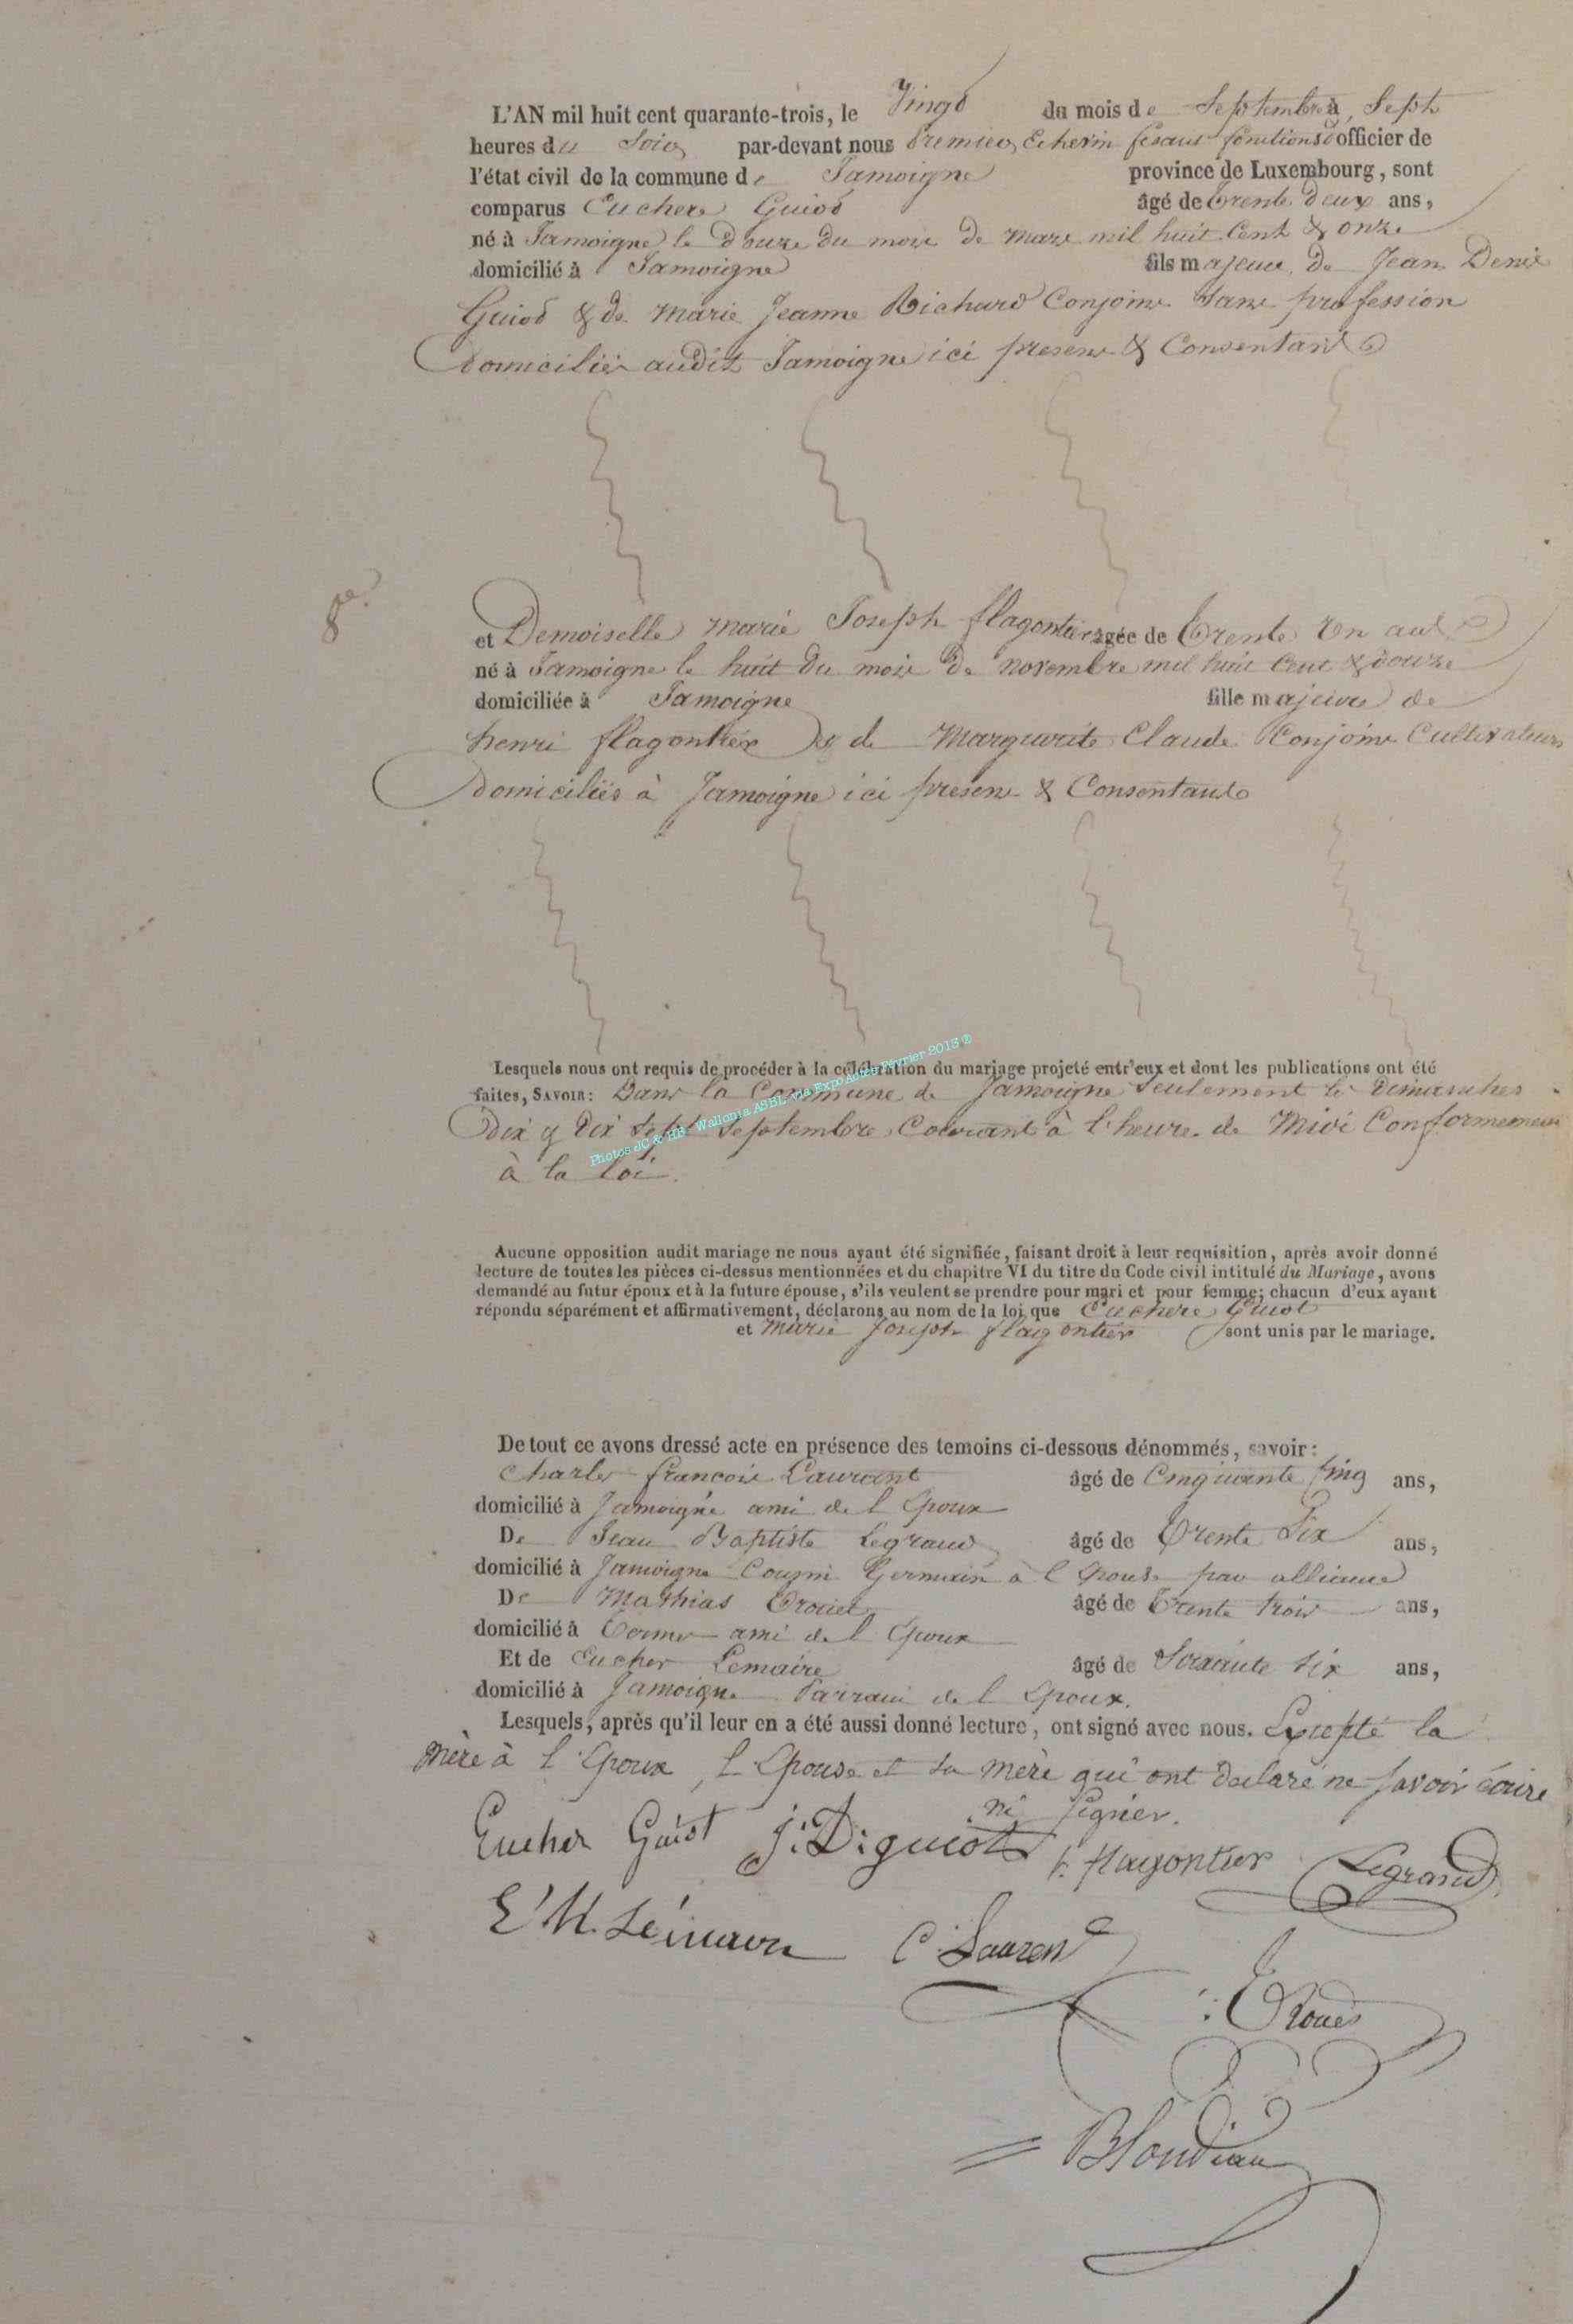 L'AN mil huit cent quarante-trois, le Vingt du mois de Septembre à Sept
heures du Soir par-devant nous Premier Echevin fesant fonctions d'officier de
l'état civil de la commune de Jamoigne province de Luxembourg, sont
comparus Euchere Guiot âgé de trente deux ans,
né à Jamoigne le douze du mois de mars mil huit Cent & onze
domicilié à Jamoigne fils majeur de Jean Denis
Guiot & de Marie Jeanne Richard Conjoins Sans profession
domiciliés audit Jamoigne ici presens & Consentants
8e.
et Demoiselle Marie Joseph flagontier agée de trente un ans
né à Jamoigne le huit du mois de novembre mil huit Cent & douze
domiciliée à Jamoigne fille majeure de
henri flagontier & de Marguerite Claude Conjoins Cultivateurs
domiciliés à Jamoigne ici presens & Consentants
Lesquels nous ont requis de procéder à la célébration du mariage projeté entr'eux et dont les publications ont été
faites, SAVOIR: Dans la Commune de Jamoigne Seulement les Dimanches
Dix & Dix Sept Septembre Courant à l'heure de Midi Conformement
à la Loi.
Photos JC & HB - Wallonia ASBL, via Expo Actes Février 2013 ®
Aucune opposition audit mariage ne nous ayant été signifiée, faisant droit à leur requisition, après avoir donné
lecture de toutes les pièces ci-dessus mentionnées et du chapitre VI du titre du Code civil intitulé du Mariage, avons
demandé au futur époux et à la future épouse, s'ils veulent se prendre pour mari et pour femme; chacun d'eux ayant
répondu séparément et affirmativement, déclarons au nom de la loi que Euchere Guiot
et Marie Joseph flagontier sont unis par le mariage.
De tout ce avons dressé acte en présence des temoins ci-dessous dénommés, savoir:
Charles francois Laurent âgé de Cinquante Cinq ans,
domicilié à Jamoigne ami de l Epoux
De Jean Baptiste Legrand âgé de Trente Six ans,
domicilié à Jamoigne Cousin Germain à l Epouse par alliance
De Mathias âgé de Trente trois ans,
domicilié à ami de l Epoux
Et de Eucher Lemaire âgé de Soixante six ans,
domicilié à Jamoigne Parrain de l Epoux.
Lesquels, après qu'il leur en a été aussi donné lecture, ont signé avec nous. Excepté la
Mère à l'Epoux, l Epouse et sa mère qui ont declaré ne savoir écrire
ni signer.
Eucher Guiot J: D: guiot h. flagontier Legrand
E M. Lémaire C Laurent
Blondiau